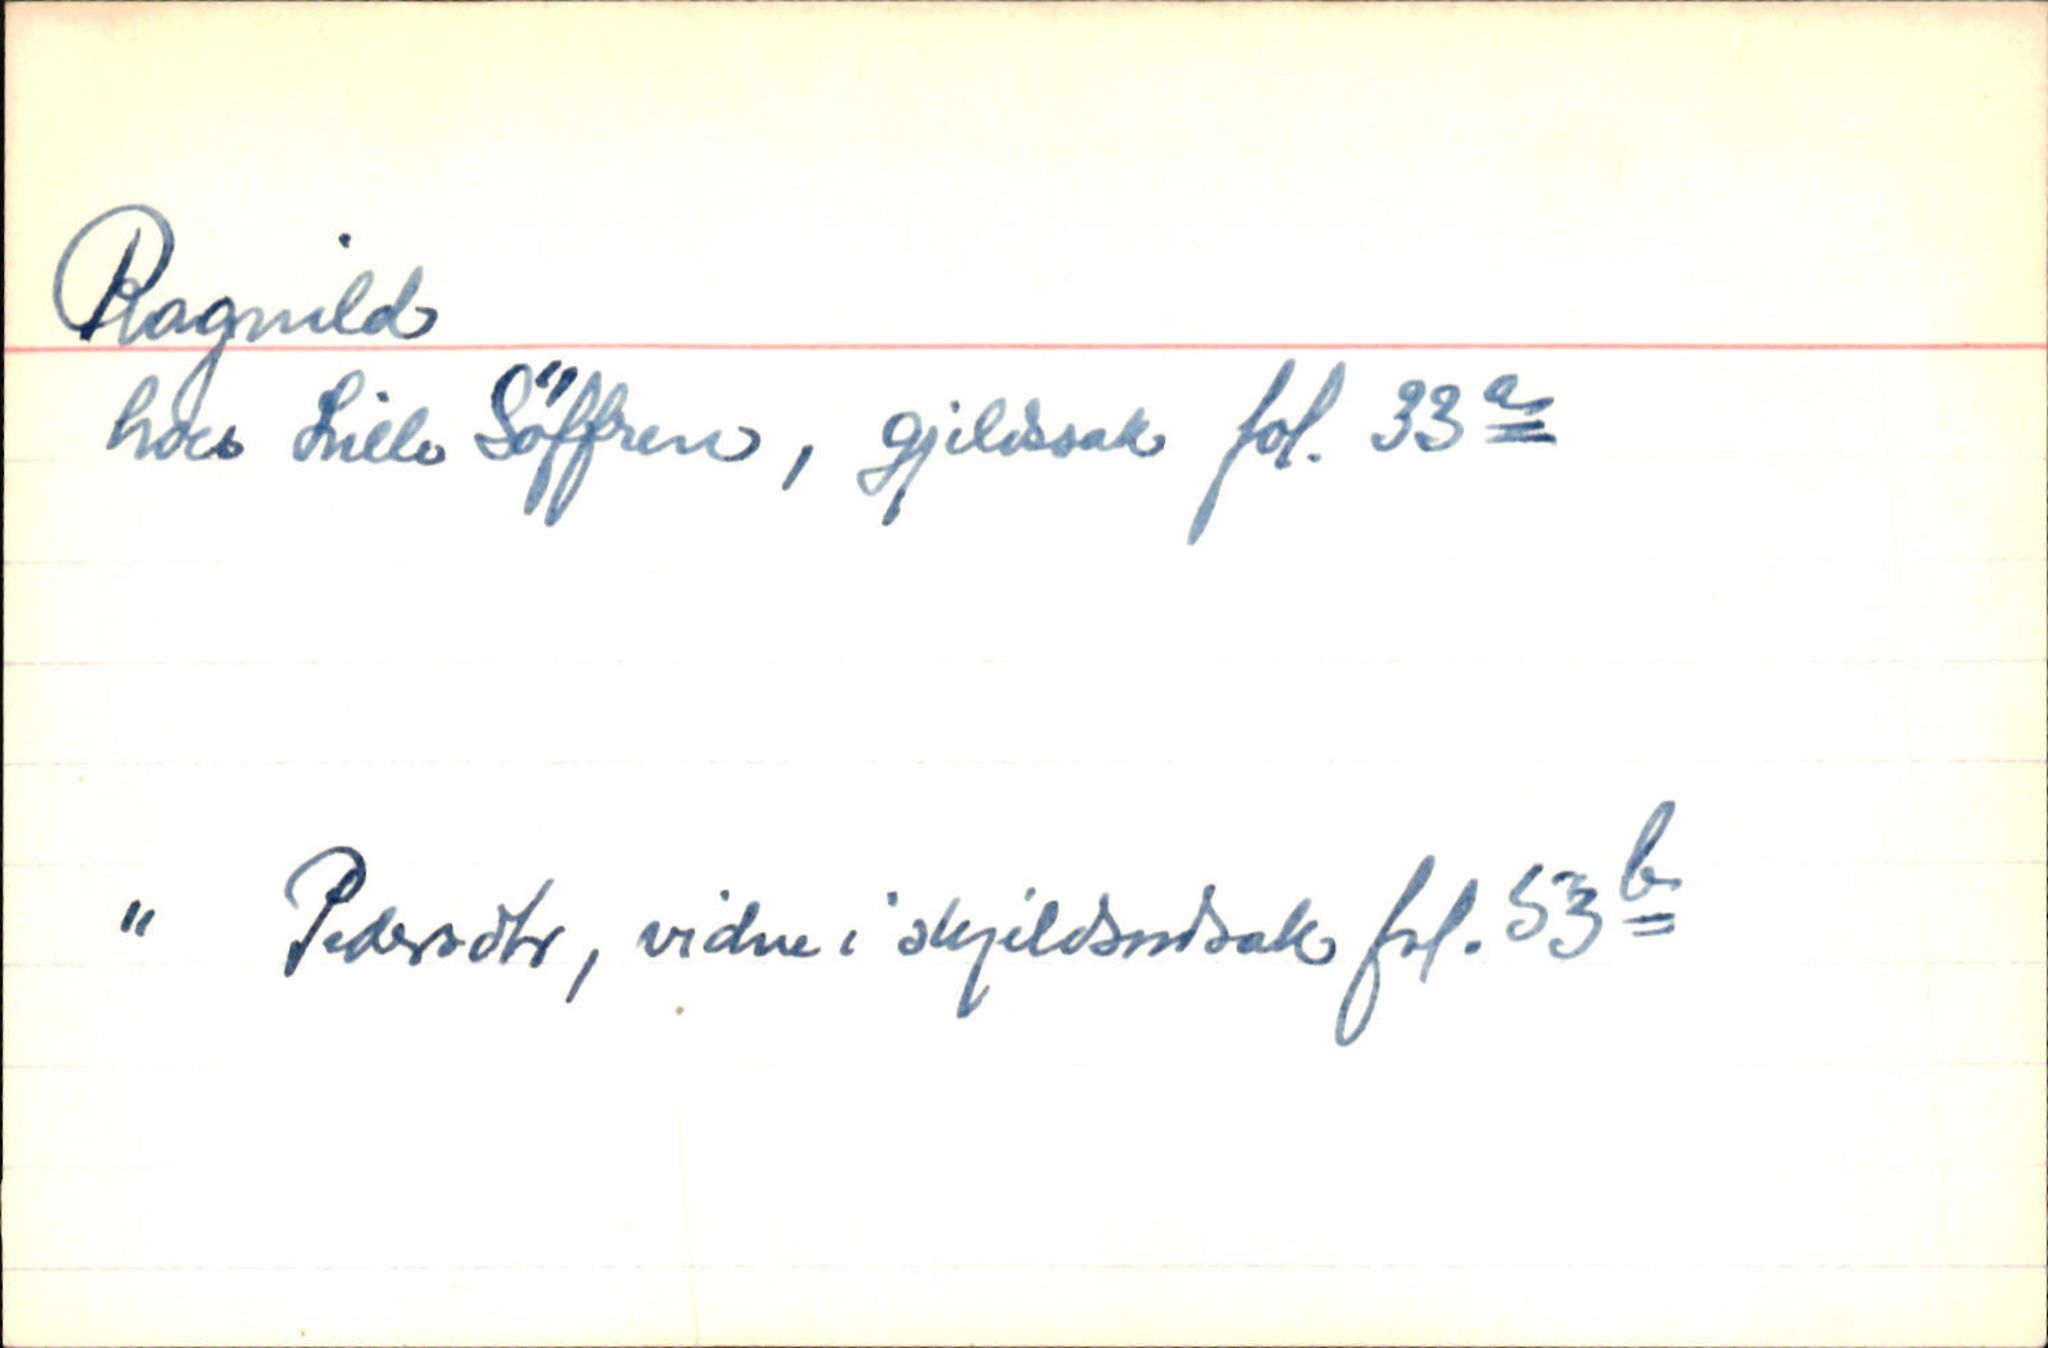 Ragnild
hoes Lille Söffren, gjeldssak fol. 33a
" Pedersdtr, vidne i skjeldsordsak fol. 53b